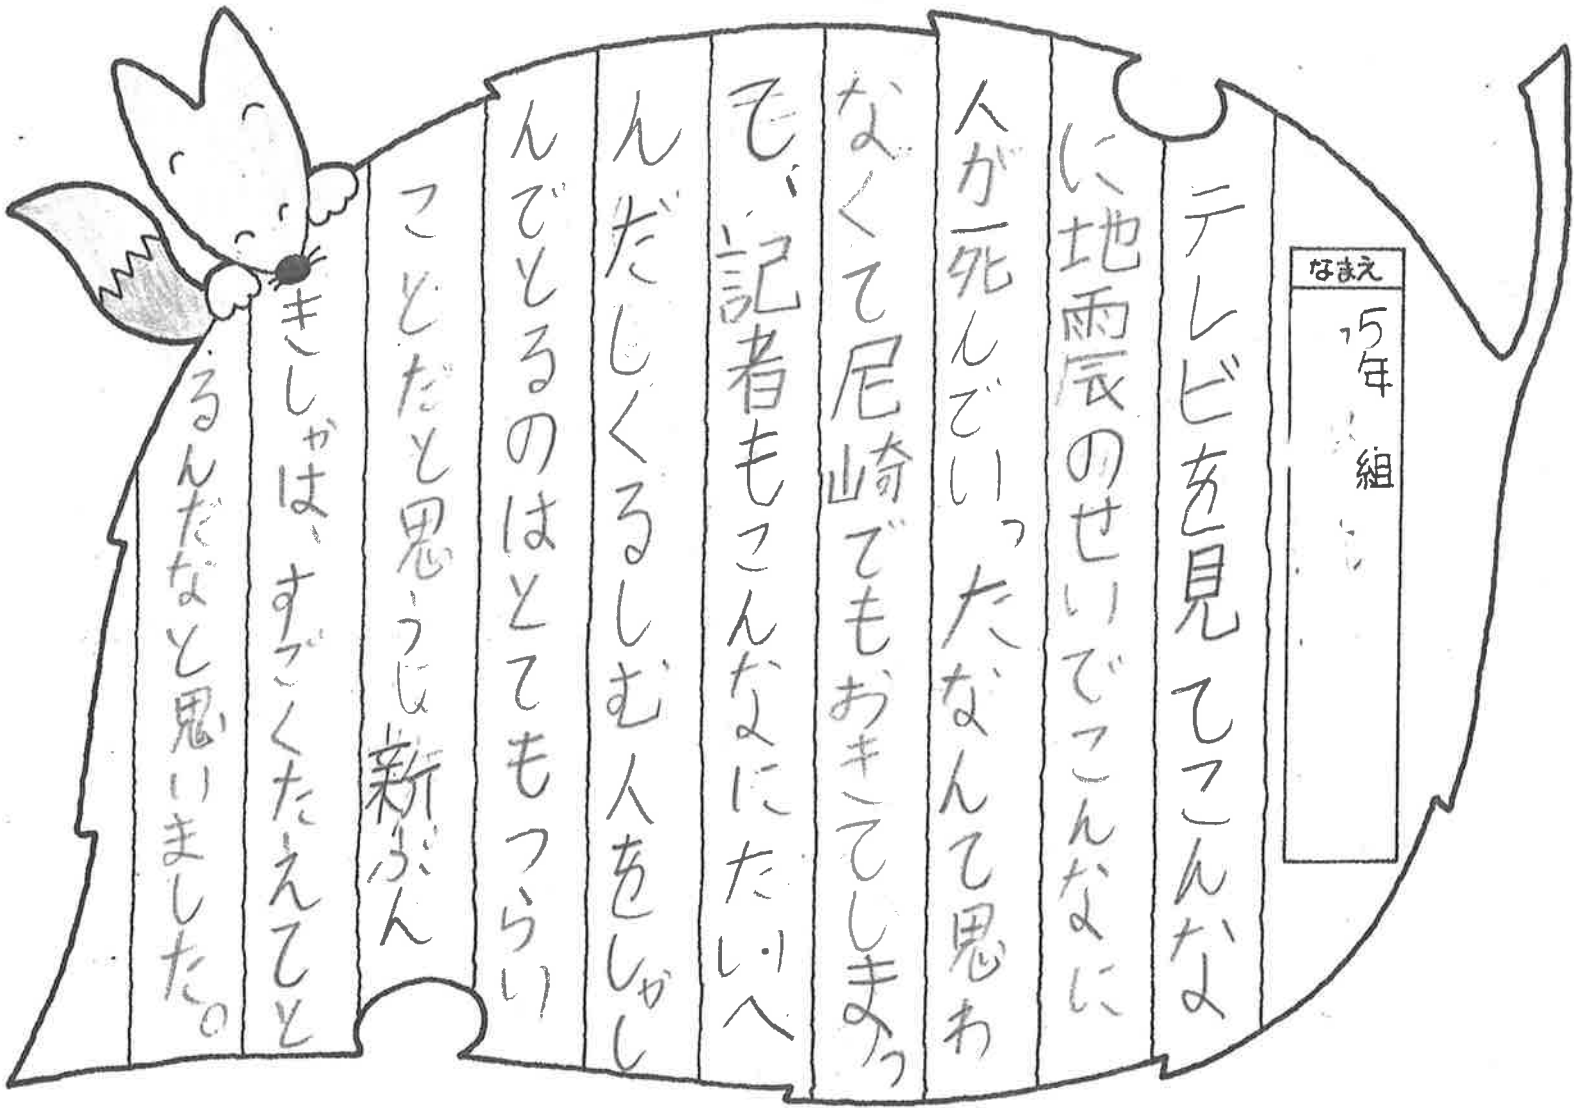 なまえ
5年 組
テレビを見てこんな
に地震のせいでこんなに
人が死んでいったなんて思わ
なくて尼崎でもおきてしまっ
て、記者もこんなにたいへ
んだしくるしむ人をしゃし
んでとるのはとてもつらい
ことだと思うし新ぶん
きしゃは、すごくたえてと
るんだなと思いました。